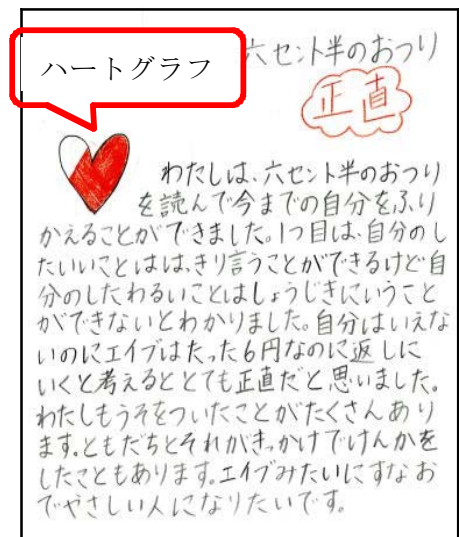 六セント半のおつり
ハートグラフ
正直
わたしは、六セント半のおつり
を読んで今までの自分をふり
かえることができました。1つ目は、自分のし
たいいことははっきり言うことができるけど自
分のしたわるいことはしょうじきにいうこと
ができないとわかりました。自分はいえな
いのにエイブはたった6円なのに返しに
いくと考えるととても正直だと思いました。
わたしもうそをついたことがたくさんあり
ます。ともだちとそれがきっかけでけんかを
したこともあります。エイブみたいにすなお
でやさしい人になりたいです。